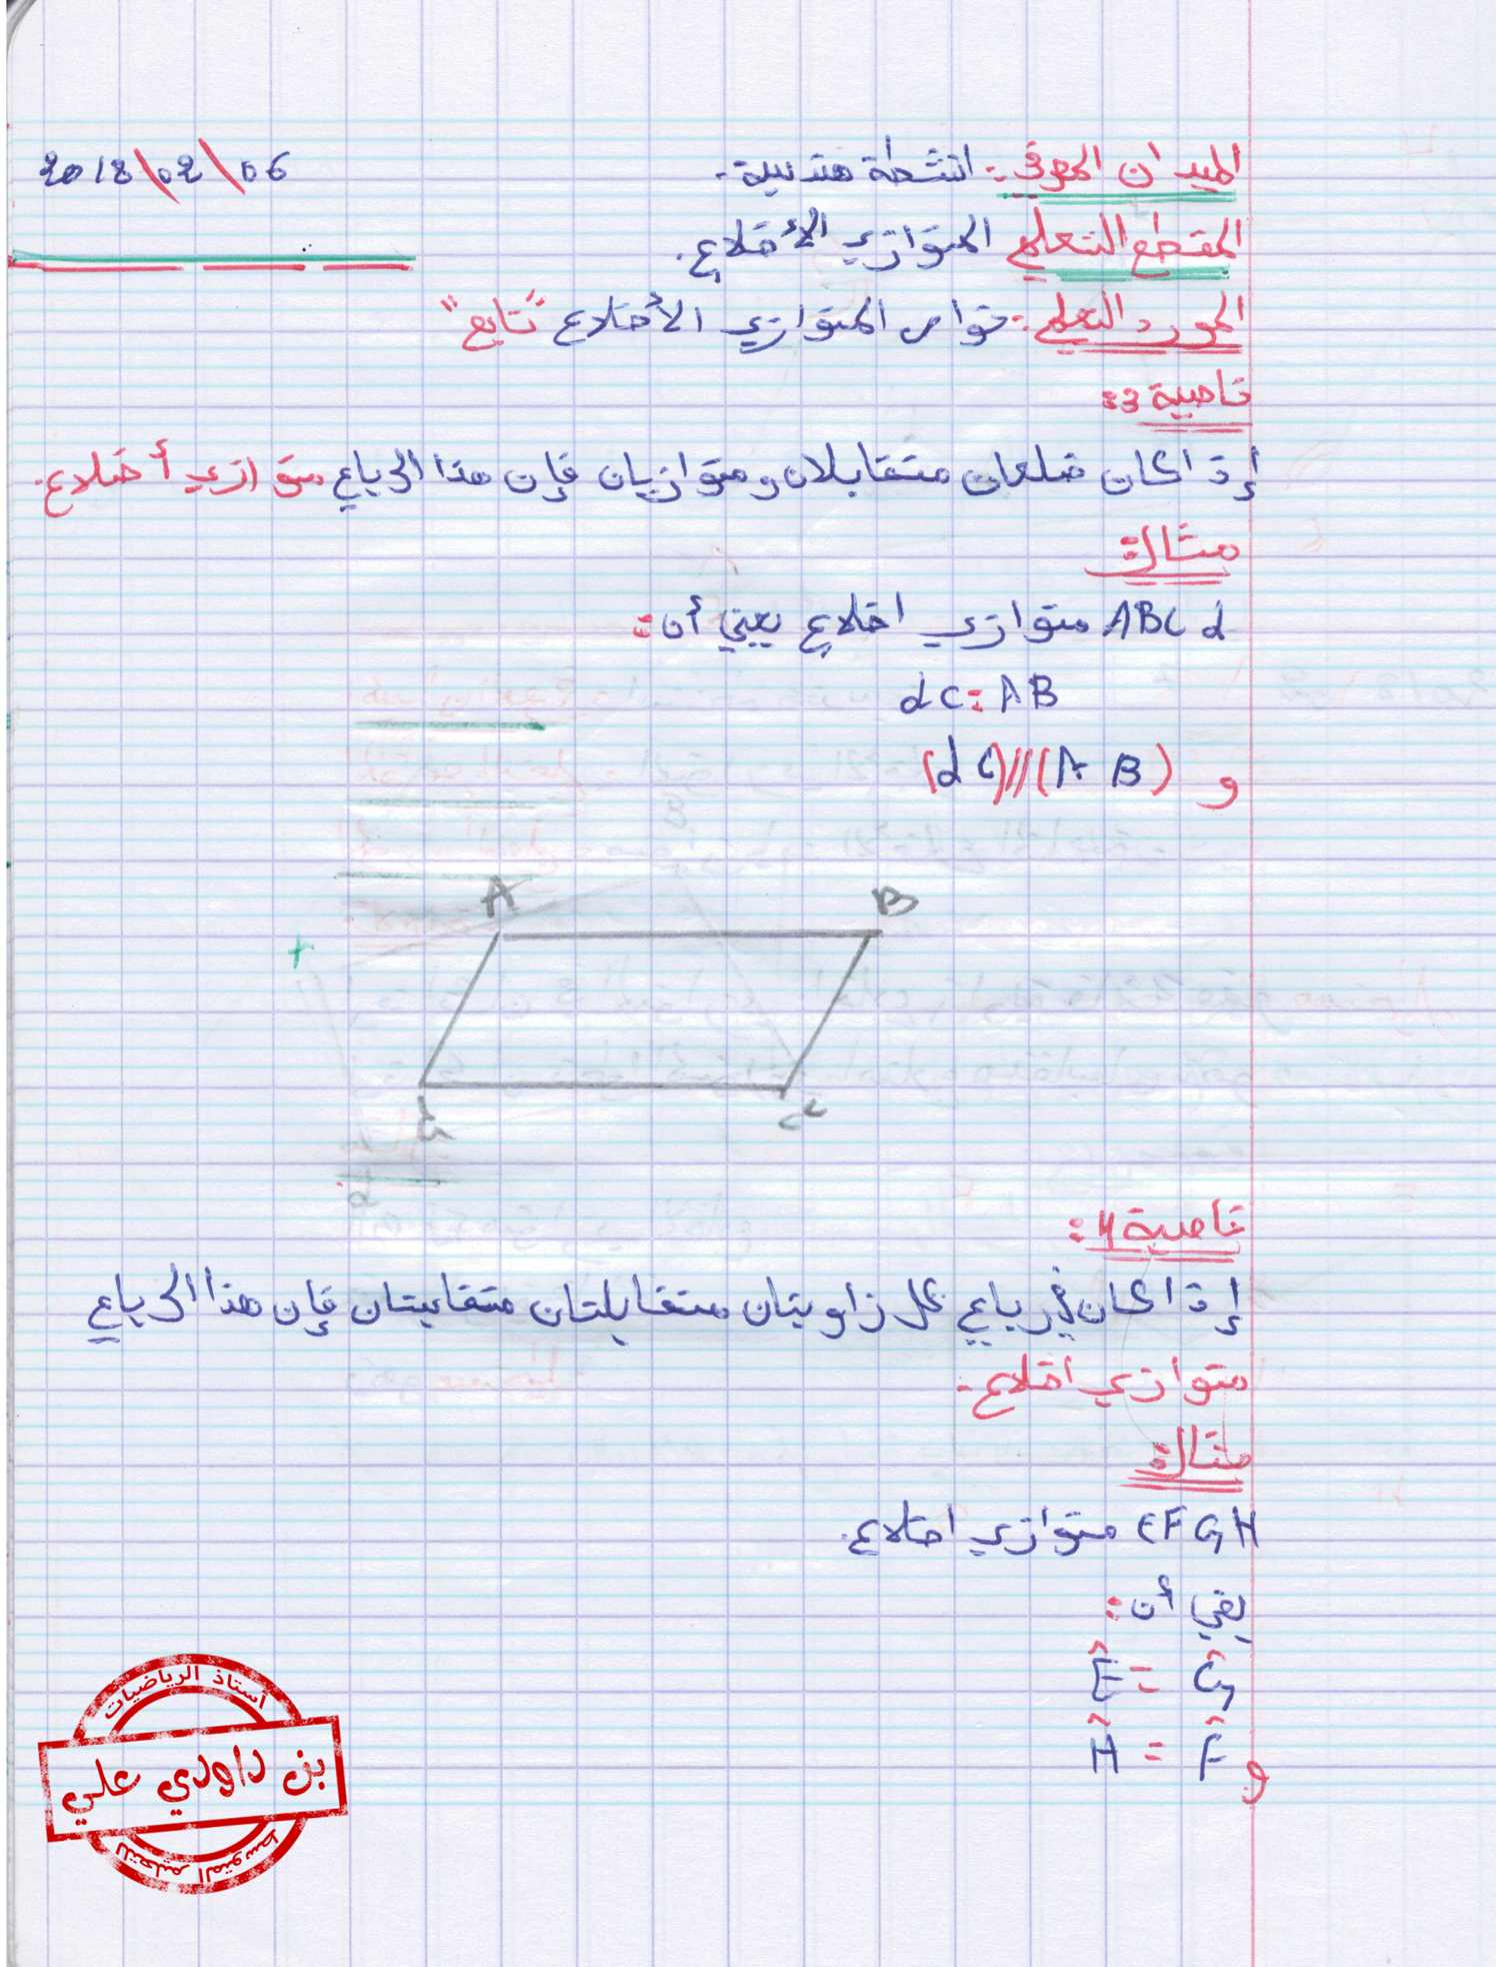 الميدان المعرفي: انشطة هندسية.
2018\02\06
المقطع التعلمي المتوازي الأضلاع.
المورد التعلمي: خواص المتوازي الأضلاع "تابع"
خاصية 3:
إذا كان ضلعان متقابلان ومتوازيان فإن هذا الرباعي متوازي أضلاع.
مثال:
ABCd متوازي اضلاع يعني أن:
dC = AB
و (dC)//(AB)
A B
d C
خاصية 4:
إذا كان في رباعي كل زاويتان متقابلتان متقايستان فإن هذا الرباعي
متوازي اضلاع.
مثال:
EFGH متوازي اضلاع.
يعني أن:
Ê = Ĝ
و Ĥ = F̂
أستاذ الرياضيات
بن داودي علي
للتعليم المتوسط